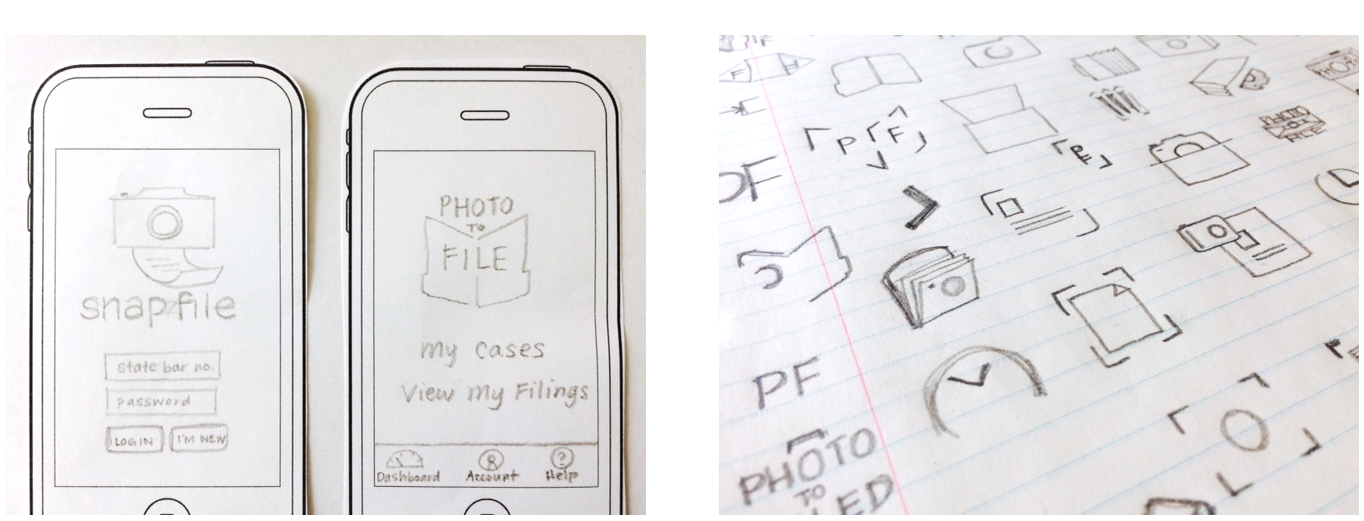 snapfile
state bar no.
password
LOGIN
I'M NEW
PHOTO
TO
FILE
My Cases
View My Filings
Dashboard
Account
Help
F
P F
PF
PHOTO
FILE
PF
PHOTO
TO